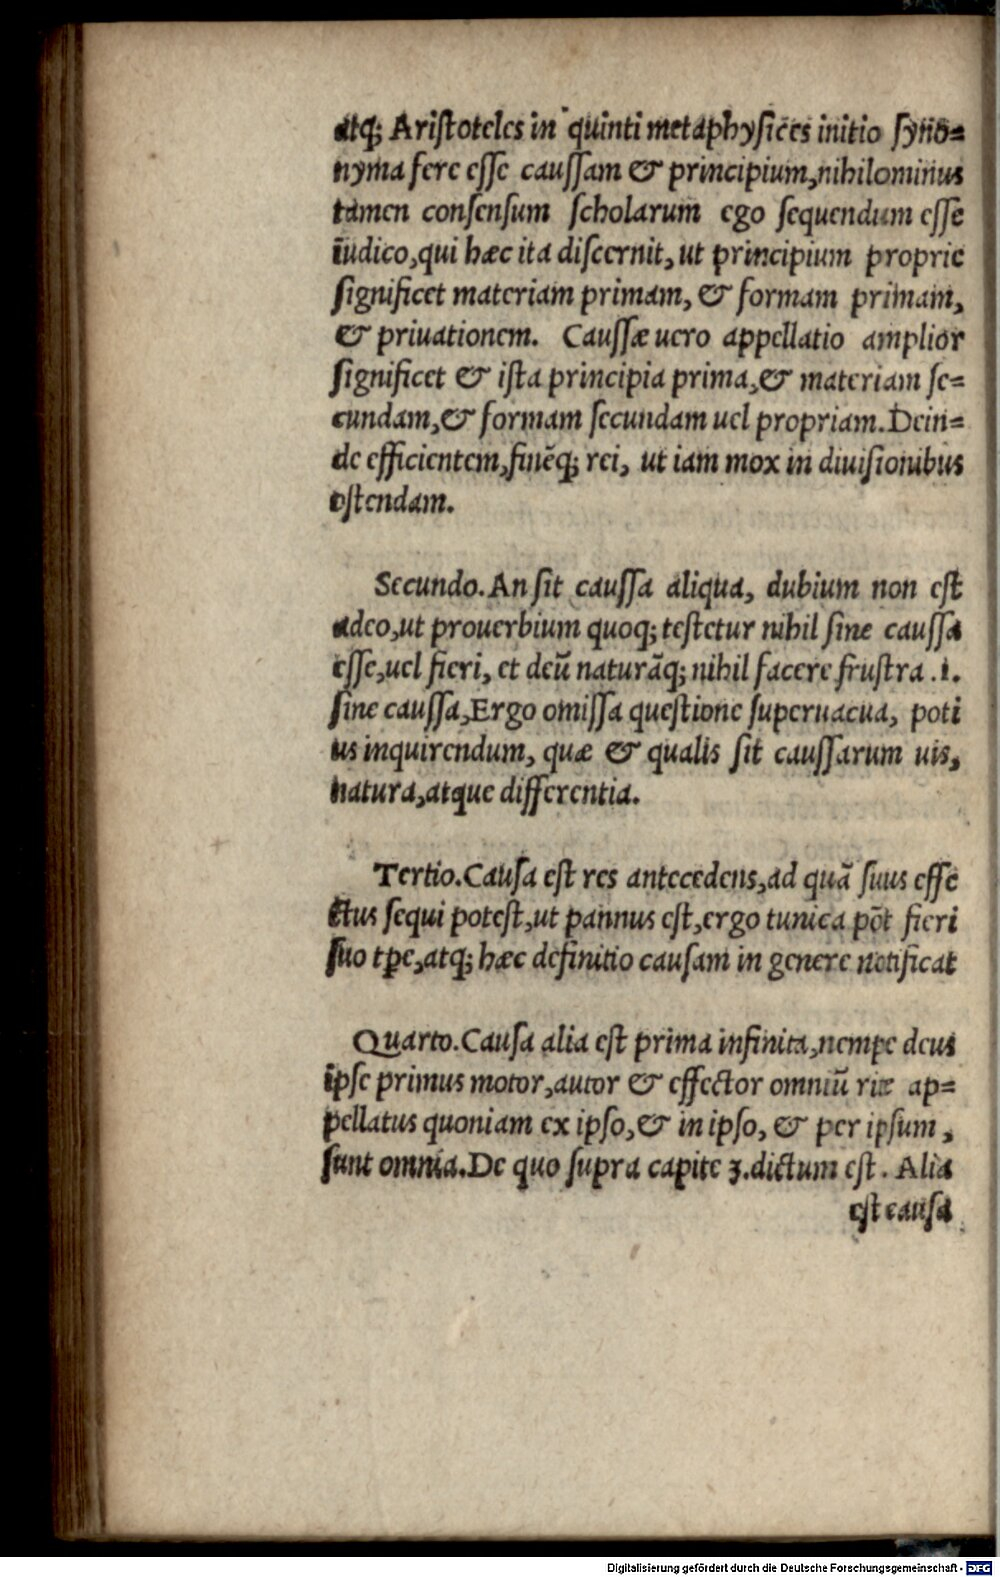 atq; Aristoteles in quinti metaphysices initio syno=
nyma fere esse caussam & principium, nihilominus
tamen consensum scholarum ego sequendum esse
iudico, qui hæc ita discernit, ut principium proprie
significet materiam primam, & formam primam,
& priuationem. Caussæ uero appellatio amplior
significet & ista principia prima, & materiam se=
cundam, & formam secundam uel propriam. Dein=
de efficientem, finẽq; rei, ut iam mox in diuisionibus
ostendam.
Secundo. An sit caussa aliqua, dubium non est
adeo, ut prouerbium quoq; testetur nihil sine caussa
esse, uel fieri, et deũ naturãq; nihil facere frustra .i.
sine caussa, Ergo omissa questione superuacua, poti
us inquirendum, quæ & qualis sit caussarum uis,
natura, atque differentia.
Tertio. Causa est res antecedens, ad quã suus effe
ctus sequi potest, ut pannus est, ergo tunica põt fieri
suo tꝑe, atq; hæc definitio causam in genere notificat
Quarto. Causa alia est prima infinita, nempe deus
ipse primus motor, autor & effector omniũ riæ ap=
pellatus quoniam ex ipso, & in ipso, & per ipsum,
sunt omnia. De quo supra capite 3. dictum est. Alia
est causa
Digitalisierung gefördert durch die Deutsche Forschungsgemeinschaft - DFG